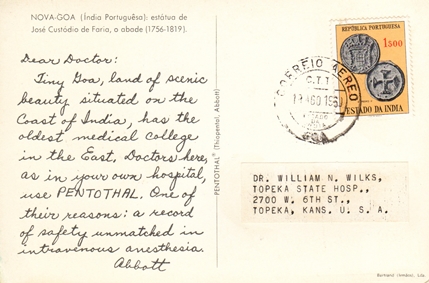 NOVA-GOA (Índia Portuguêsa): estátua de
José Custódio de Faria, o abade (1756-1819).
Dear Doctor:
Tiny Goa, land of scenic
beauty situated on the
Coast of India, has the
oldest medical college
in the East. Doctors here,
as in your own hospital,
use PENTOTHAL. One of
their reasons: a record
of safety unmatched in
intravenous anesthesia.
Abbott
PENTOTHAL® (Thiopental, Abbott)
CORREIO AEREO
C.T.T.
GOA
REPÚBLICA PORTUGUESA
1$00
ESTADO DA INDIA
DR. WILLIAM N. WILKS,
TOPEKA STATE HOSP.,
2700 W. 6TH ST.,
TOPEKA, KANS. U. S. A.